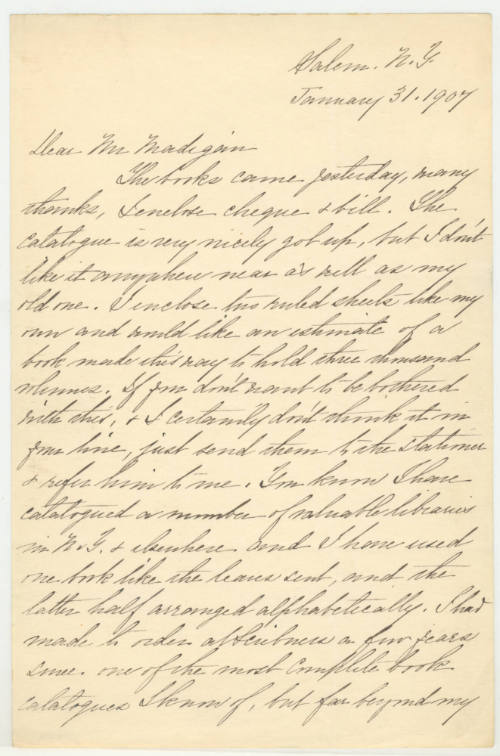 Salem. N.Y.
January 31. 1907
Dear Mr Madigan
The books came yesterday, many
thanks, I enclose cheque & bill. The
catalogue is very nicely got up, but I don't
like it anywhere near as well as my
old one. I enclose two ruled sheets like my
own and would like an estimate of a
book made this way to hold three thousand
volumes. If you don't want to be bothered
with this, & I certainly don't think it in
your line, just send them to the stationer
& refer him to me. You know I have
catalogued a number of valuable libraries
in N.Y. & elsewhere and I have used
one book like the leaves sent, and the
latter half arranged alphabetically. I had
made to order at Scribners a few years
since. one of the most complete book
catalogues I know of, but far beyond my